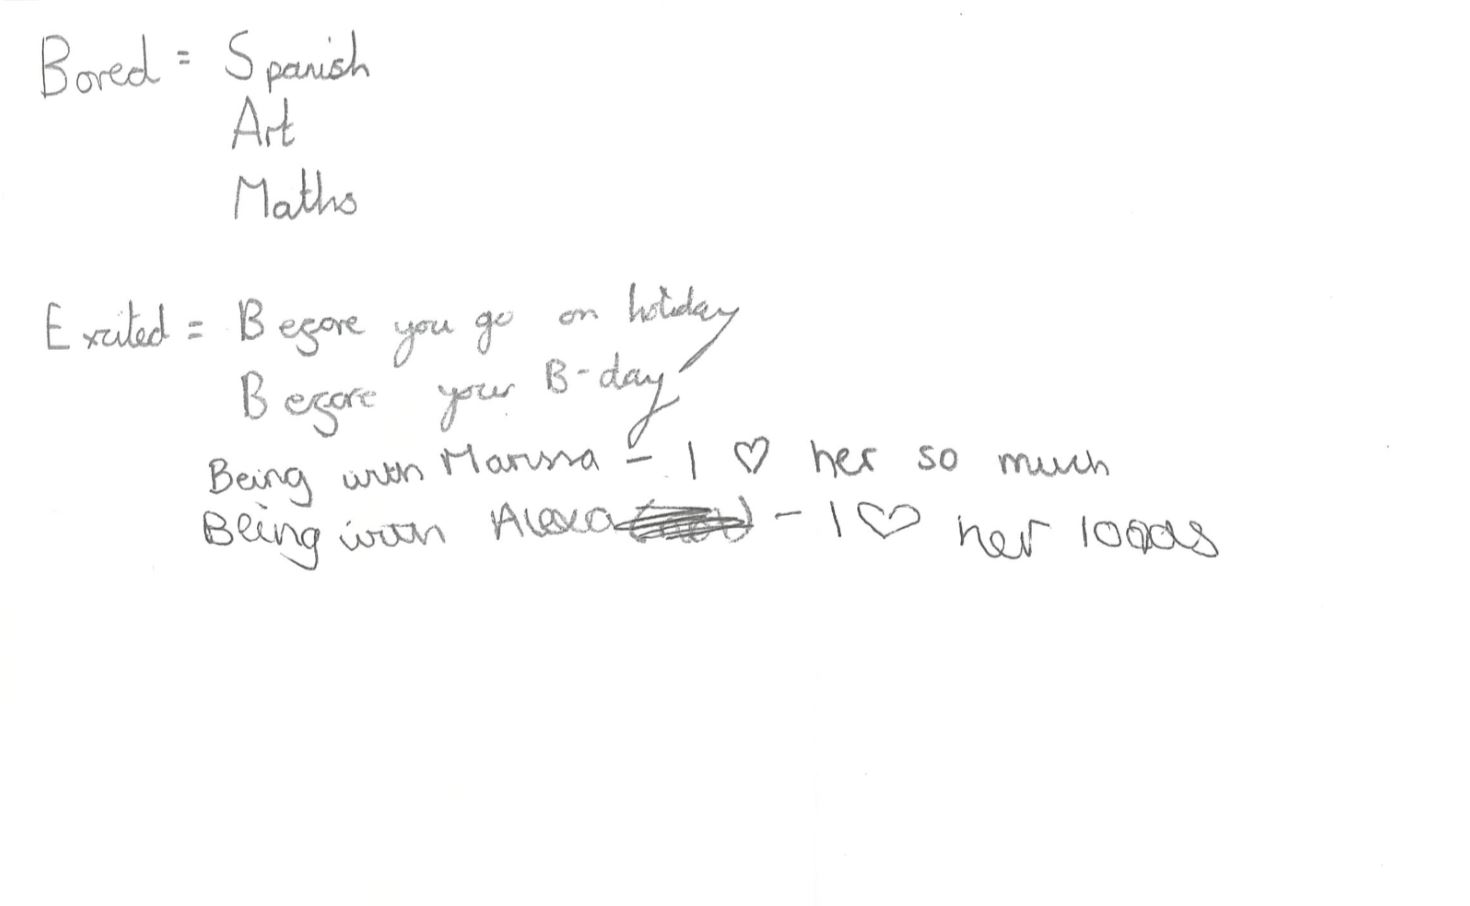 Bored = Spanish
Art
Maths
Excited = Before you go on holiday
Before your B-day
Being with Marissa - I ♡ her so much
Being with Alexa - I ♡ her loads